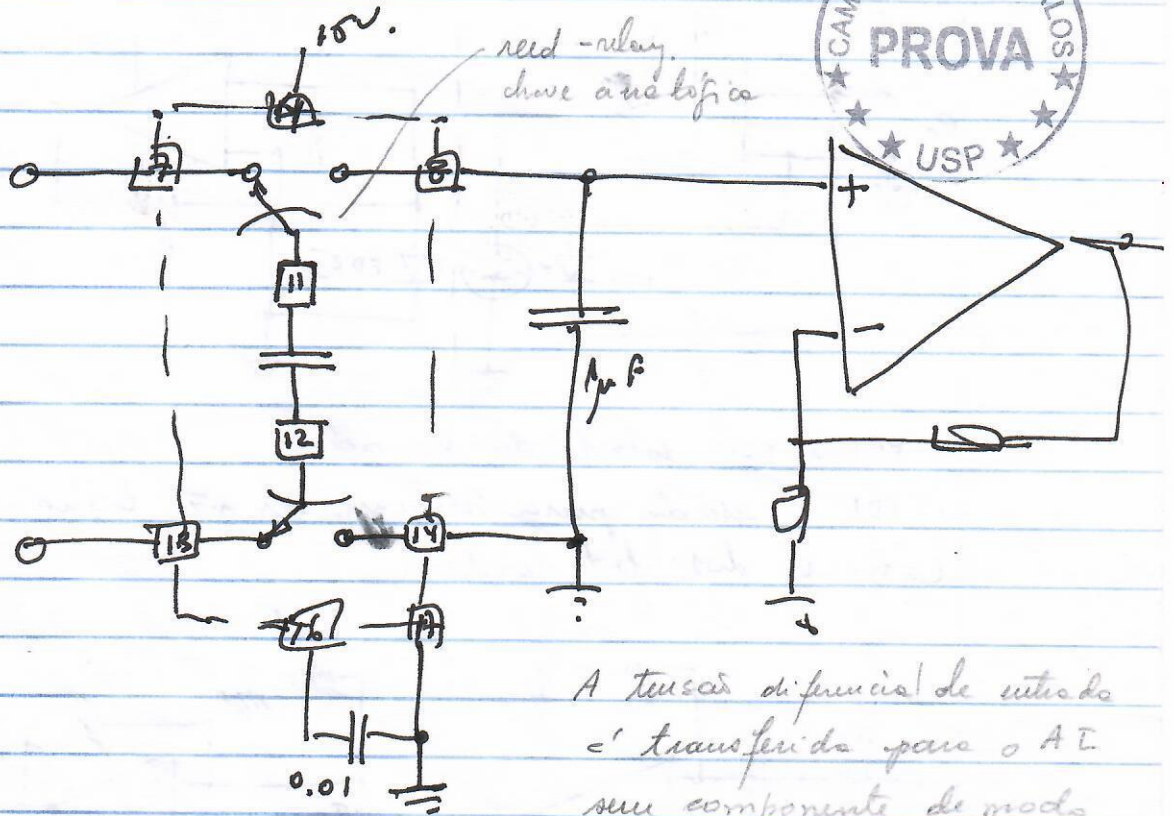 15V.
reed-relay.
chave analógica
CAM
OS
PROVA
USP
7
8
+
11
1μF
-
12
13
14
16
17
0.01
A tensão diferencial de entrada
é transferida para o AI
sem componente de modo